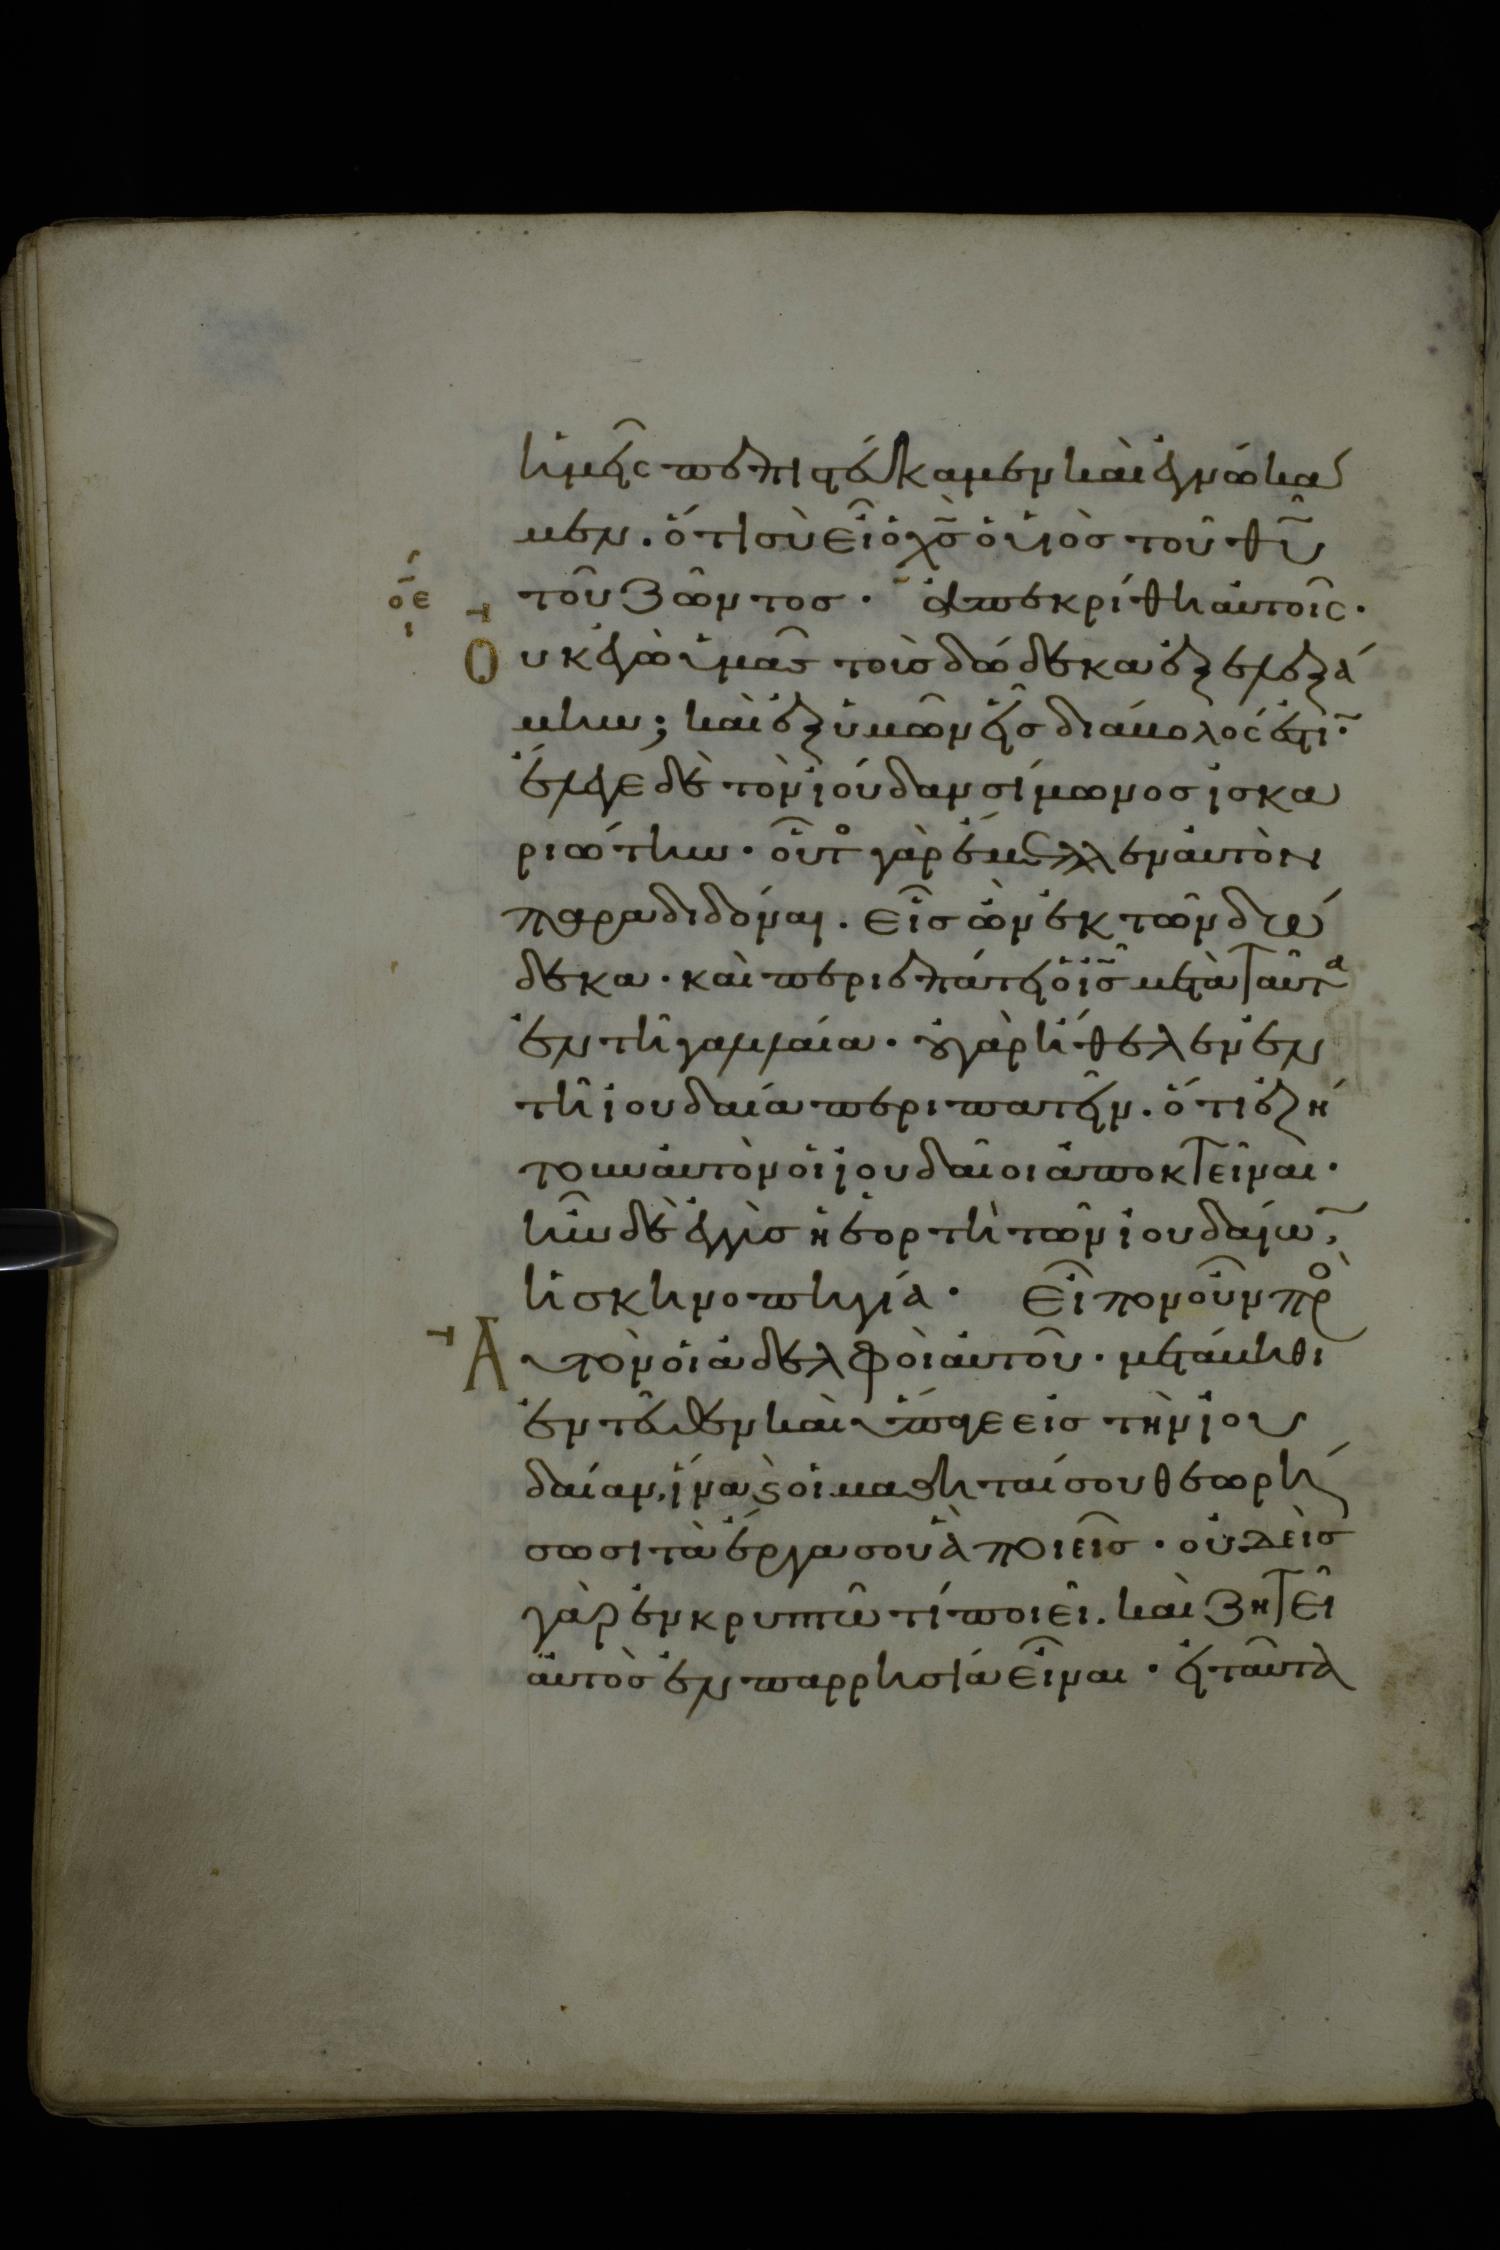 ἡμεῖς πεπιστεύκαμεν καὶ ἐγνώκα
μεν. ὅτι σὺ εἶ ὁ χ̅ς̅ ὁ υἱὸς τοῦ θ̅υ̅
τοῦ ζῶντος. ἀπεκρίθη αὐτοῖς.
ο̅ε̅
ι
Οὐκ ἐγὼ ὑμᾶς τοὺς δώδεκα ἐξελεξά
μην; καὶ ἐξ ὑμῶν εἷς διάβολός ἐστι̅.
ἔλεγε δὲ τὸν ἰούδαν σίμωνος ἰσκα
ριώτην. οὗτο γὰρ ἔμελλεν αὐτὸν
παραδιδόναι. εἷς ὢν ἐκ τῶν δώ
δεκα. καὶ περιεπάτει ὁ ι̅ς̅ μετὰ ταῦτα
ἐν τῆ γαλιλαία. οὐ γὰρ ἤθελεν ἐν
τῆ ἰουδαία περιπατεῖν. ὅτι ἐζή
τουν αὐτὸν οἱ ἰουδαῖοι ἀποκτεῖναι.
ἦν δὲ ἐγγὺς ἡ ἑορτὴ τῶν ἰουδαίω̅,
ἡ σκηνοπηγία. εἶπον οὖν πρὸ
Αυτὸν οἱ ἀδελφοὶ αὐτοῦ. μετάβηθι
ἐντεῦθεν καὶ ὕπαγε εἰς τὴν ἰου
δαίαν, ἵνα ϗ οἱ μαθηταί σου θεωρή
σωσι τὰ ἔργα σου ἃ ποιεῖς. οὐδεὶς
γὰρ ἐν κρυπτῶ τί ποιεῖ. καὶ ζητεῖ
αὐτὸς ἐν παρρησία εἶναι. εἰ ταῦτα